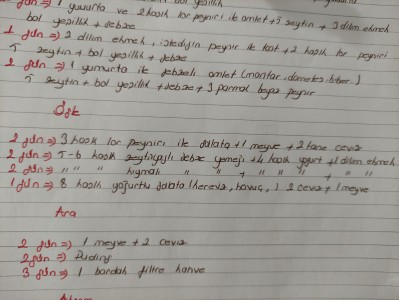 1 gün => 1 yumurta ve 2 kaşık lor peyniri ile omlet + 5 zeytin + 3 dilim ekmek
bol yeşillik + sebze
1 gün => 2 dilim ekmek, istediğin peynir ile tost + 2 kaşık lor peyniri
5 zeytin + bol yeşillik + sebze
2 gün => 1 yumurta ile sebzeli omlet (mantar, domates, biber)
5 zeytin + bol yeşillik + sebze + 3 parmak beyaz peynir
Öğle
2 gün => 3 kaşık lor peyniri ile salata + 1 meyve + 2 tane ceviz
2 gün => 5-6 kaşık zeytinyağlı sebze yemeği + 4 kaşık yoğurt + 1 dilim ekmek
2 gün => " " " kıymalı " " + " " " + " "
1 gün => 8 kaşık yoğurtlu salata (kereviz, havuç, ) 2 ceviz + 1 meyve
Ara
2 gün => 1 meyve + 2 ceviz
2 gün => Puding
3 gün => 1 bardak filtre kahve